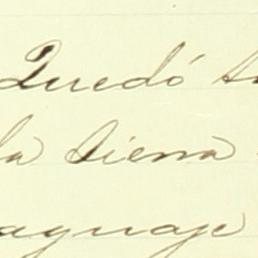 Quedó
la sierra
aguaje